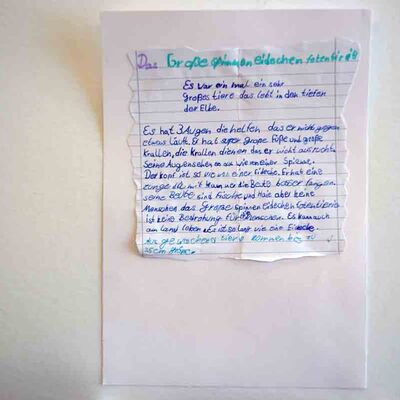 Das Große spinnen eidechen toten tir
Es war ein mal ein sehr
großes tiere das lebt in den tiefen
der Elbe.
Es hat 3 Augen die helfen das er nicht gegen
etwas läuft. Er hat super große Füße und große
krallen, die krallen dienen das er nicht ausrutscht.
Seine Augen sehen so aus wie von einer Spinne.
Der kopf ist so wie von einer Eidechse. Er hat eine
zunge da mit kann er die Beute besser fangen.
seine Beute sind Fische und Haie aber keine
Menschen das große spinnen eidechen totentier
ist keine Bedrohung für Menschen. Es kann auch
am Land leben es ist so lang wie eine
Aus gewachsene tiere kommen bis zu
35cm größe.